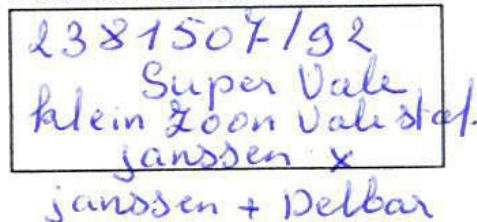 2381507/92
Super Vale
klein Zoon Vale stef.
janssen x
janssen + Delbar